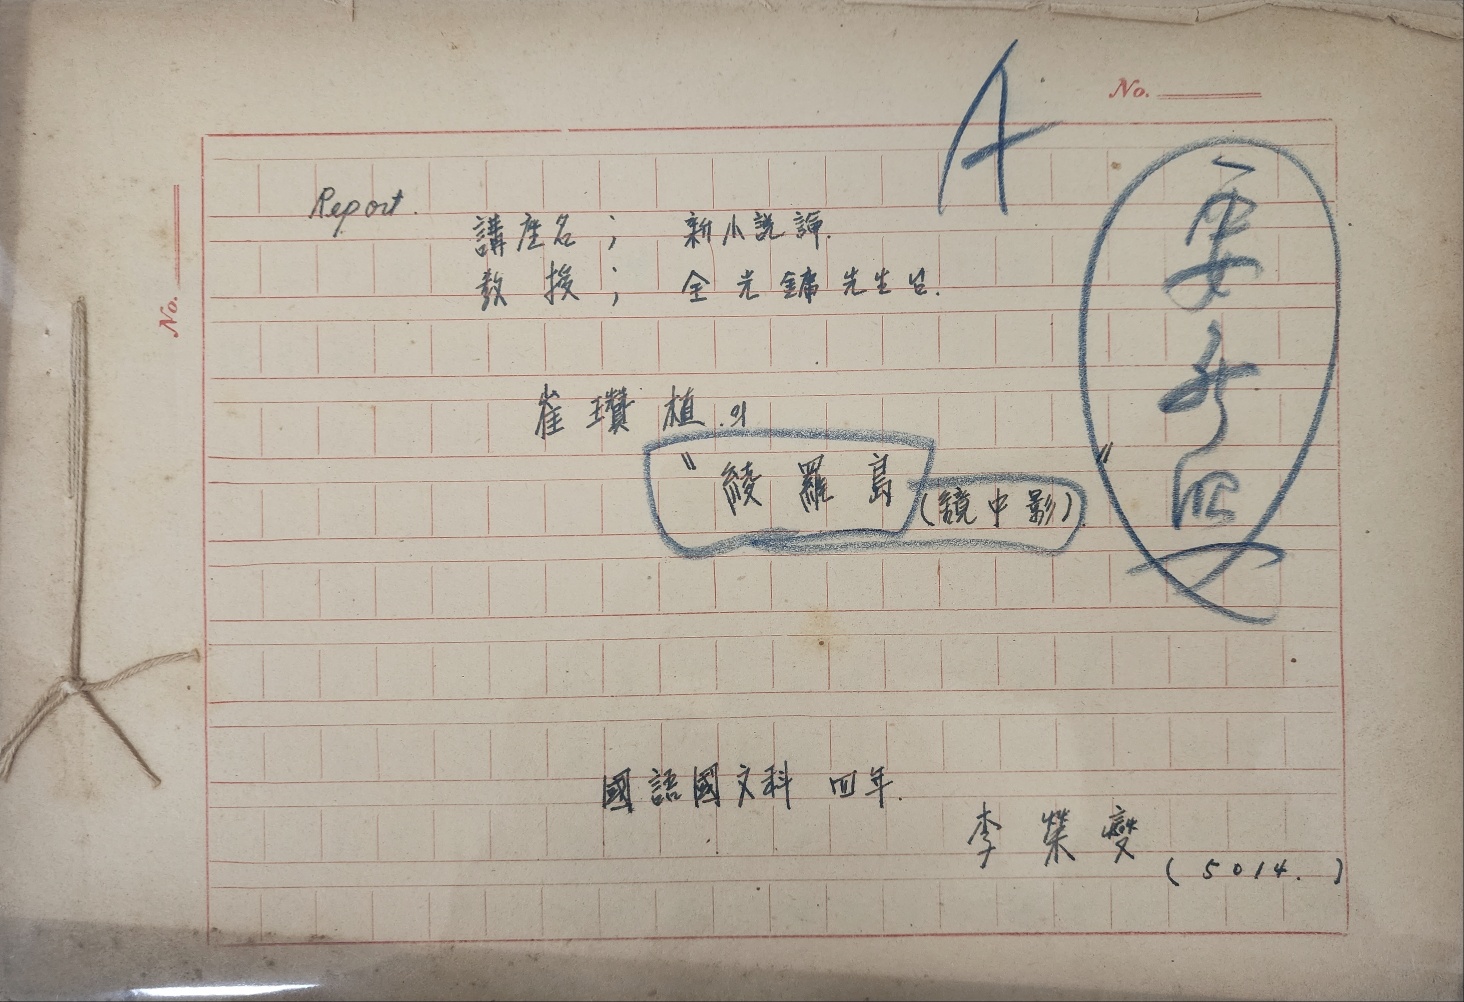 No.
A
Report.
講座名 ; 新小説論.
教授 ; 全光鏞先生님.
No.
崔瓚植의
"綾羅島(鏡中影)"
國語國文科 四年.
李榮燮
(5014.)